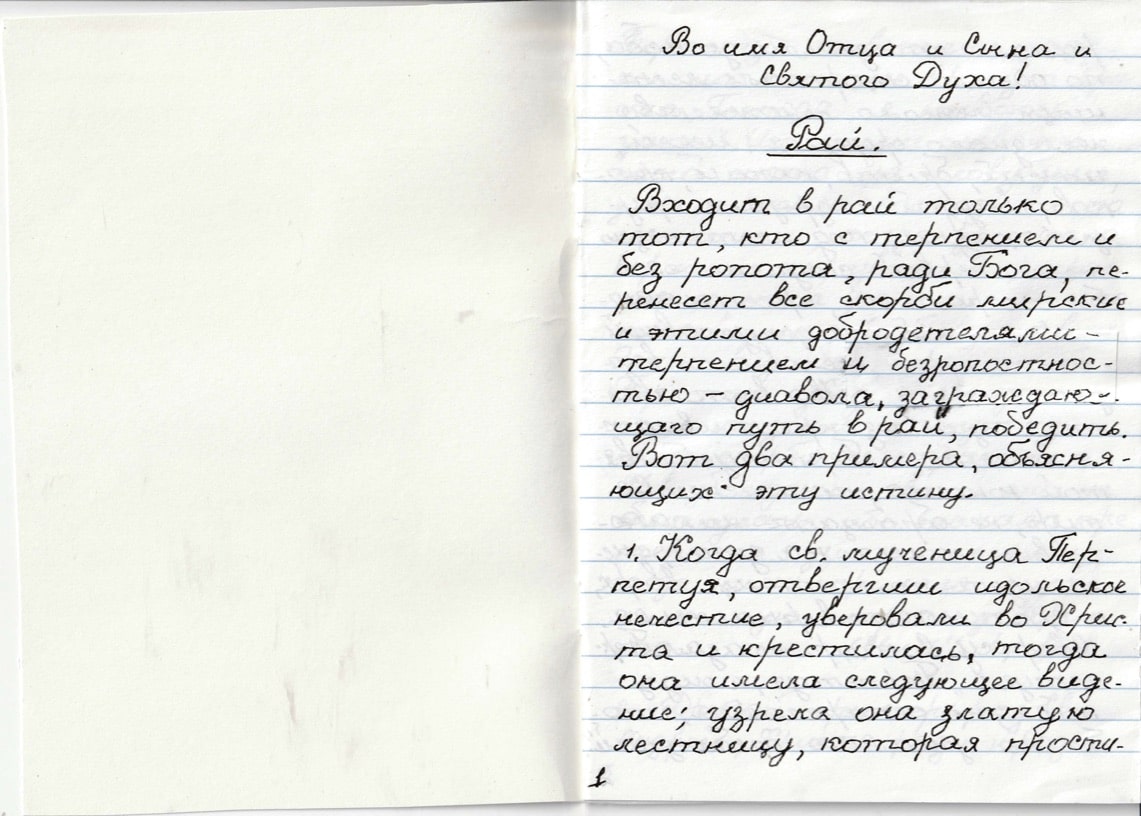 Во имя Отца и Сына и
Святого Духа!
Рай.
Входит в рай только
тот, кто с терпением и
без ропота, ради Бога, пе-
ренесет все скорби мирские
и этими добродетелями -
терпением и безропостнос-
тью - диавола, заграждаю-
щаго путь в рай, победить.
Вот два примера, объясня-
ющих эту истину.
1. Когда св. мученица Пер-
петуя, отвергши идольское
нечестие, уверовали во Хрис
та и крестилась, тогда
она имела следующее виде-
ние; узрела она златую
лестницу, которая прости-
1